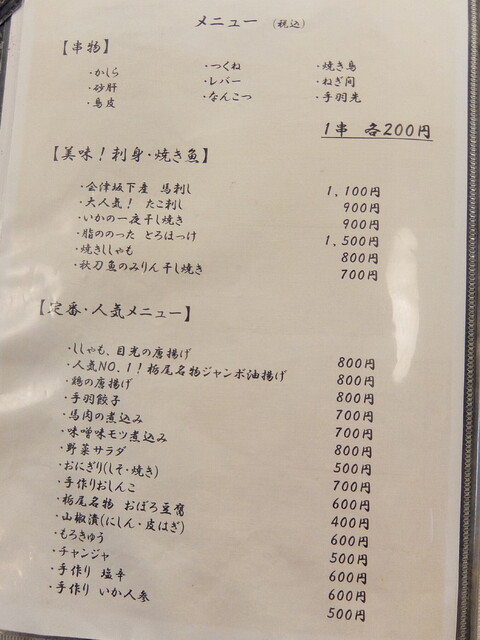 メニュー （税込）
【串物】
・かしら ・つくね ・焼き鳥
・砂肝 ・レバー ・ねぎ間
・鳥皮 ・なんこつ ・手羽先
1串 各200円
【美味！刺身・焼き魚】
・会津坂下産 馬刺し 1,100円
・大人気！ たこ刺し 900円
・いかの一夜干し焼き 900円
・脂ののった とろほっけ 1,500円
・焼きししゃも 800円
・秋刀魚のみりん干し焼き 700円
【定番・人気メニュー】
・ししゃも、目光の唐揚げ 800円
・人気NO.1！栃尾名物ジャンボ油揚げ 800円
・鶏の唐揚げ 800円
・手羽餃子 700円
・馬肉の煮込み 700円
・味噌味モツ煮込み 800円
・野菜サラダ 500円
・おにぎり(しそ・焼き) 700円
・手作りおしんこ 600円
・栃尾名物 おぼろ豆腐 400円
・山椒漬(にしん・皮はぎ) 600円
・もろきゅう 500円
・チャンジャ 600円
・手作り 塩辛 600円
・手作り いか人参 500円